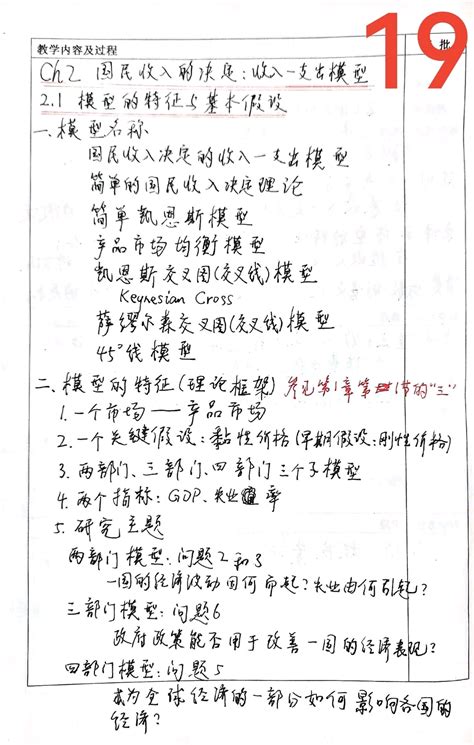 19
教学内容及过程
批
Ch2 国民收入的决定:收入—支出模型
2.1 模型的特征与基本假设
一、模型名称
国民收入决定的收入—支出模型
简单的国民收入决定理论
简单凯恩斯模型
产品市场均衡模型
凯恩斯交叉图(交叉线)模型
Keynesian Cross
萨缪尔森交叉图(交叉线)模型
45°线模型
二、模型的特征(理论框架) 参见第1章第1节的"三"
1. 一个市场——产品市场
2. 一个关键假设:黏性价格(早期假设:刚性价格)
3. 两部门、三部门、四部门三个子模型
4. 两个指标:GDP、失业率
5. 研究主题
两部门模型:问题2和3
一国的经济波动因何而起?失业由何引起?
三部门模型:问题6
政府政策能否用于改善一国的经济表现?
四部门模型:问题5
成为全球经济的一部分如何影响各国的
经济?